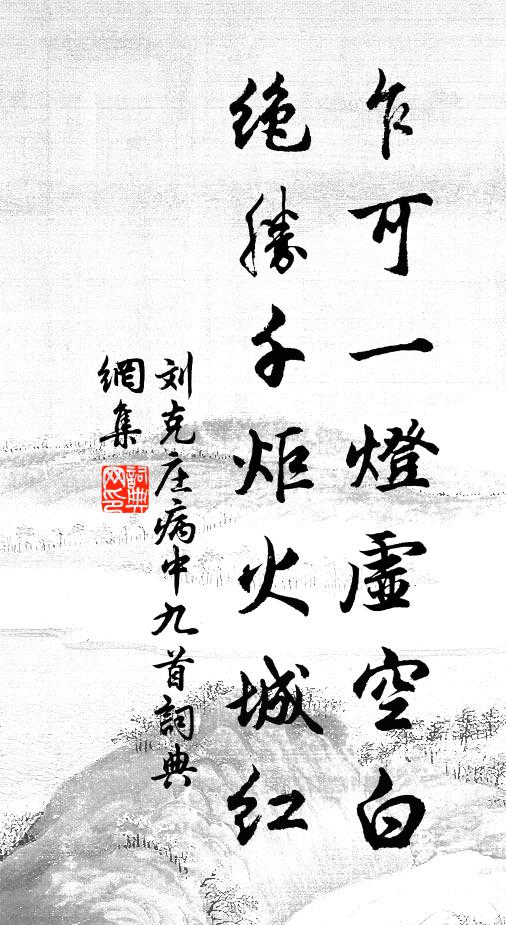 乍可一燈虛空白
絶勝千炬火城红
刘克庄病中九首詞典
網集
詞典网印